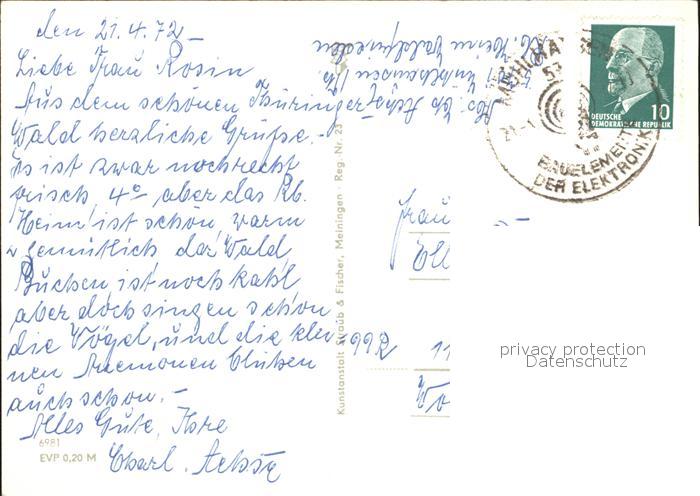 den 21.4.72 –
Liebe Frau Rosin
Aus dem schönen Thüringer
Wald herzliche Grüße. –
Es ist zwar noch recht
frisch, 4° aber das Rb.
Heim ist schön warm
u gemütlich, der Wald,
Buchen ist noch kahl,
aber doch singen schon
die Vögel, und die klei
nen Anemonen blühen
auch schon. –
Alles Gute, Ihre
Charl.
6981
EVP 0,20 M
Kunstanstalt Straub & Fischer, Meiningen · Reg. Nr. 23
99R
Frau
Ell
11
Wo
Heim Waldfrieden
DEUTSCHE
DEMOKRATISCHE REPUBLIK
10
BAUELEMENTE
DER ELEKTRONIK
privacy protection
Datenschutz